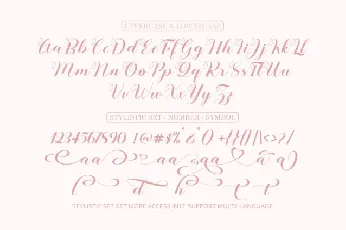 UPPERCASE & LOWERCASE
Aa Bb Cc Dd Ee Ff Gg Hh Ii Jj Kk Ll
Mm Nn Oo Pp Qq Rr Ss Tt Uu
Vv Ww Xx Yy Zz
STYLISTIC SET - NUMBER - SYMBOL
1234561890 !@#$%
a a a a a a a
d h t
STYLISTIC SET GET MORE ACCESS IN IT SUPPORT MULTY LANGUAGE